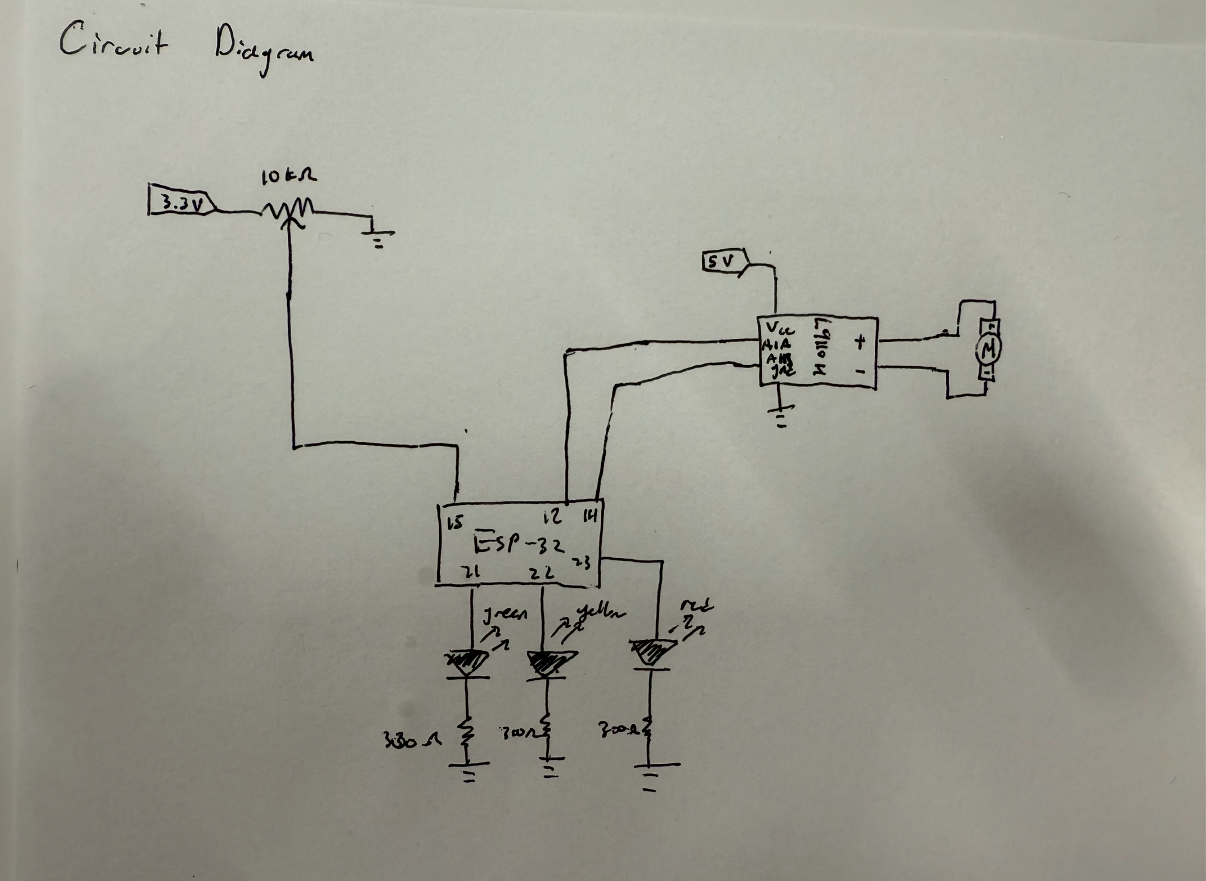 Circuit Diagram
10kΩ
3.3V
5V
Vcc
A1A
A1B
L9110H
+
-
M
15
12
14
ESP-32
23
21
22
green
yellow
red
330Ω
300Ω
300Ω